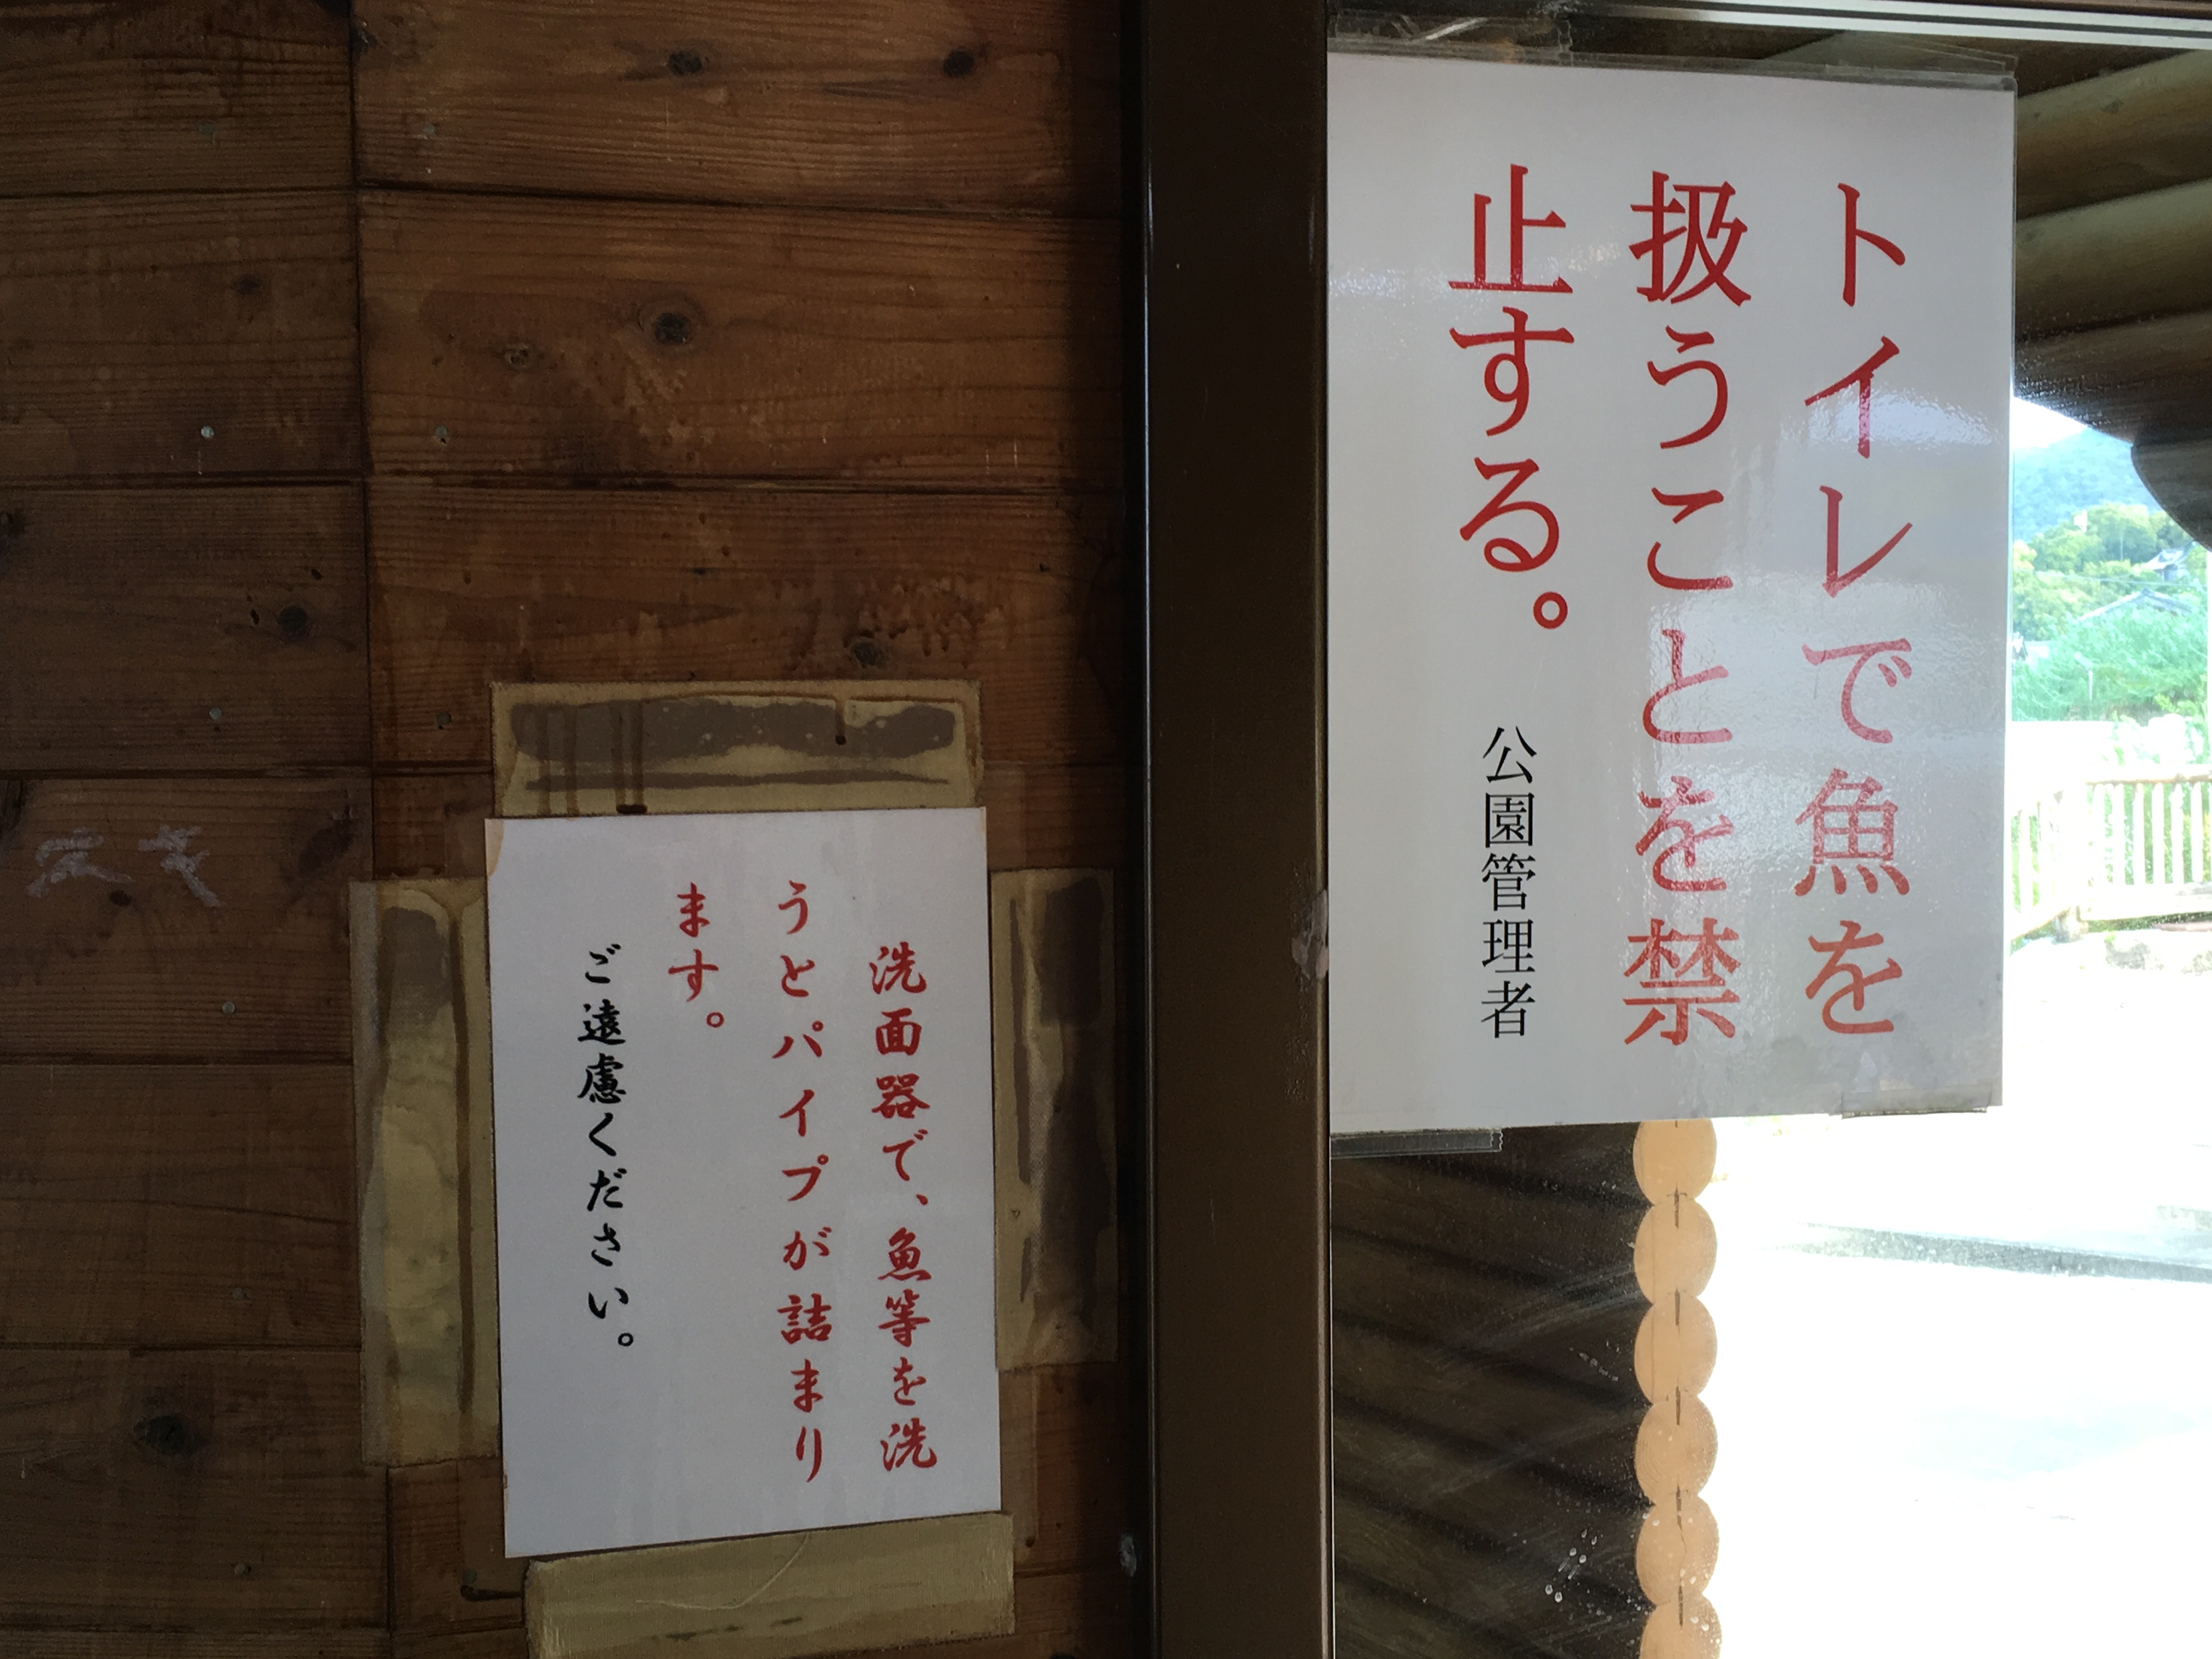 トイレで魚を
扱うことを禁
止する。
公園管理者
洗面器で、魚等を洗
うとパイプが詰まり
ます。
ご遠慮ください。